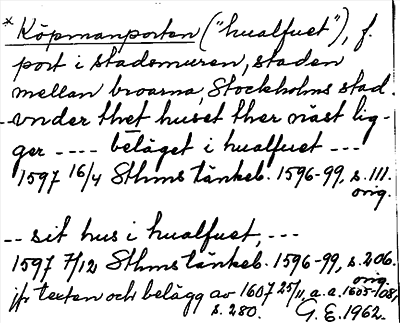 * Köpmanporten ("hualfuet"), f.
port i stadsmuren, staden
mellan broarna, Stockholms stad.
-- vnder thet huset ther näst lig-
ger ---- beläget i hualfuet ---
1597 16/4 Sthms tänkeb. 1596-99, s. 111.
orig.
-- sit hus i hualfuet, ---
1597 7/12 Sthms tänkeb. 1596-99, s. 206.
orig.
jfr texten och belägg av 1607 25/11, a.a. 1605-08,
s. 280. G.E. 1962.